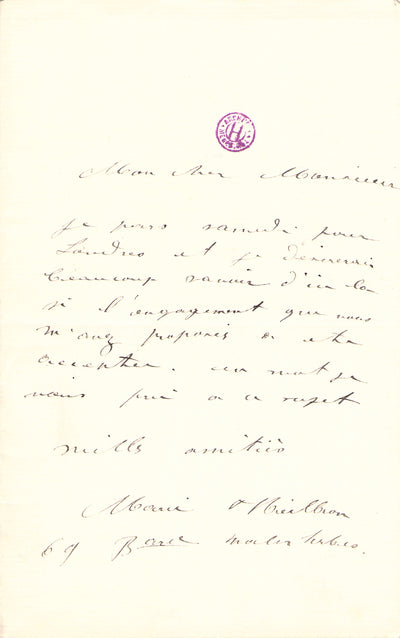 Mon cher Monsieur
je pars samedi pour
Londres et je désirerais
beaucoup savoir d'ici là
si l'engagement que vous
m'avez proposés a été
accepter. un mot je
vous prie a ce sujet
mille amitiés
Marie Heilbron
69 Bard malesherbes.